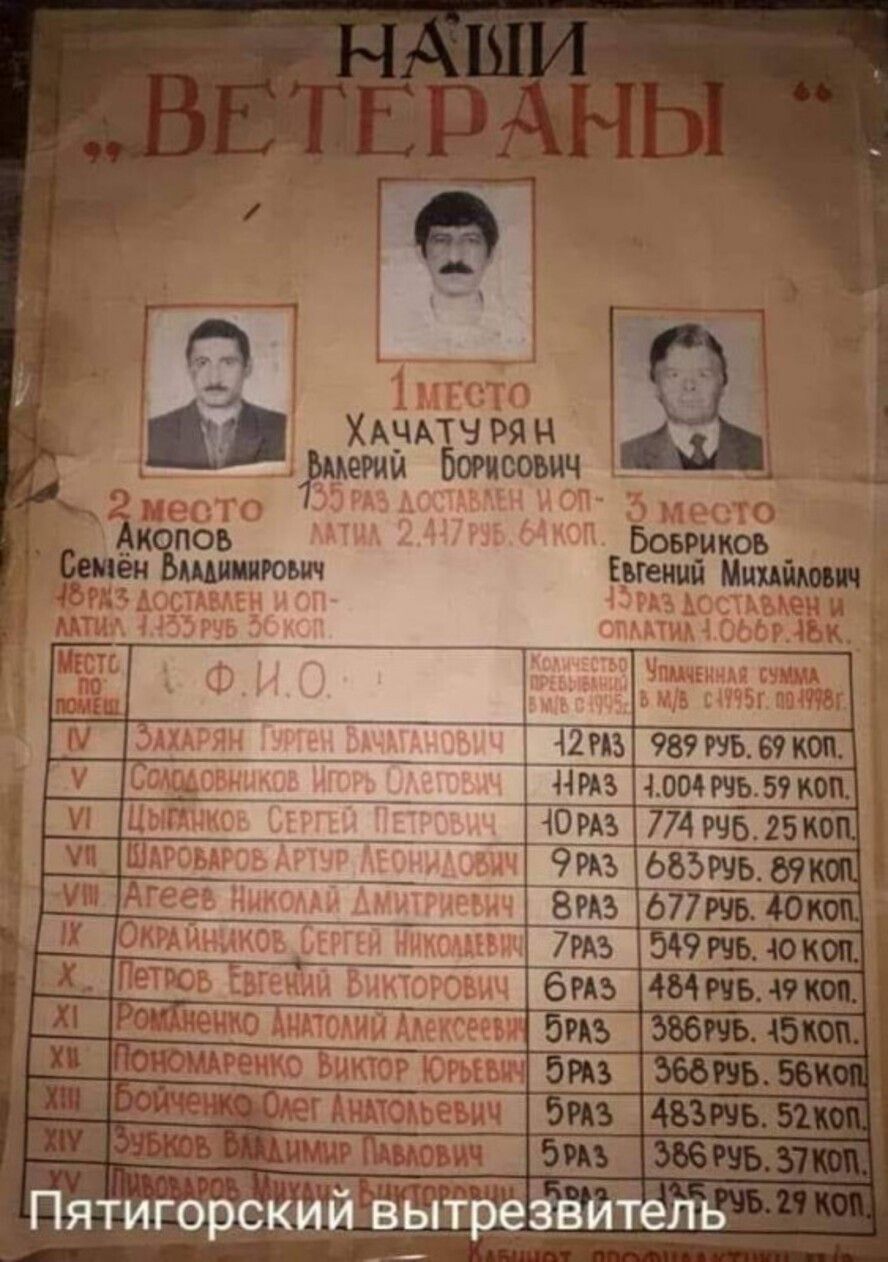 НАШИ
„ВЕТЕРАНЫ“
1 МЕСТО
ХАЧАТУРЯН
ВАЛЕРИЙ БОРИСОВИЧ
135 РАЗ ДОСТАВЛЕН И ОП-
ЛАТИЛ 2.417 РУБ. 64 КОП.
2 место
АКОПОВ
СЕМЁН ВЛАДИМИРОВИЧ
18 РАЗ ДОСТАВЛЕН И ОП-
ЛАТИЛ 1.133 РУБ 36 КОП.
3 место
БОБРИКОВ
ЕВГЕНИЙ МИХАЙЛОВИЧ
13 РАЗ ДОСТАВЛЕН И
ОПЛАТИЛ 1.066 Р. 18 К.
МЕСТО ПО ПОМЕЩ. Ф.И.О. КОЛИЧЕСТВО ПРЕБЫВАНИЙ В М/В С 1995г. УПЛАЧЕННАЯ СУММА В М/В С 1995г. ПО 1998г.
IV ЗАХАРЯН ГУРГЕН ВАЧАГАНОВИЧ 12 РАЗ 989 РУБ. 69 КОП.
V СОЛОДОВНИКОВ ИГОРЬ ОЛЕГОВИЧ 11 РАЗ 1.004 РУБ. 59 КОП.
VI ЦЫГАНКОВ СЕРГЕЙ ПЕТРОВИЧ 10 РАЗ 774 РУБ. 25 КОП.
VII ШАРОВАРОВ АРТУР ЛЕОНИДОВИЧ 9 РАЗ 683 РУБ. 89 КОП.
VIII АГЕЕВ НИКОЛАЙ ДМИТРИЕВИЧ 8 РАЗ 677 РУБ. 40 КОП.
IX ОКРАЙНИКОВ СЕРГЕЙ НИКОЛАЕВИЧ 7 РАЗ 549 РУБ. 10 КОП.
X. ПЕТРОВ ЕВГЕНИЙ ВИКТОРОВИЧ 6 РАЗ 484 РУБ. 19 КОП.
XI РОМАНЕНКО АНАТОЛИЙ АЛЕКСЕЕВИЧ 5 РАЗ 386 РУБ. 15 КОП.
XII ПОНОМАРЕНКО ВИКТОР ЮРЬЕВИЧ 5 РАЗ 368 РУБ. 56 КОП
XIII БОЙЧЕНКО ОЛЕГ АНАТОЛЬЕВИЧ 5 РАЗ 483 РУБ. 52 КОП.
XIV ЗУБКОВ ВЛАДИМИР ПАВЛОВИЧ 5 РАЗ 386 РУБ. 37 КОП.
XV ПИВОВАРОВ МИХАИЛ ВИКТОРОВИЧ 5 РАЗ 135 РУБ. 29 КОП.
Пятигорский вытрезвитель
КАБИНЕТ ПРОФИЛАКТИКИ